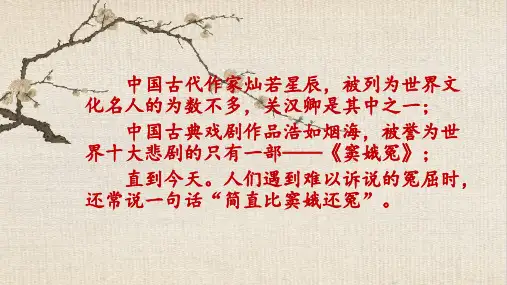 中国古代作家灿若星辰，被列为世界文
化名人的为数不多，关汉卿是其中之一；
中国古典戏剧作品浩如烟海，被誉为世
界十大悲剧的只有一部——《窦娥冤》；
直到今天。人们遇到难以诉说的冤屈时，
还常说一句话“简直比窦娥还冤”。